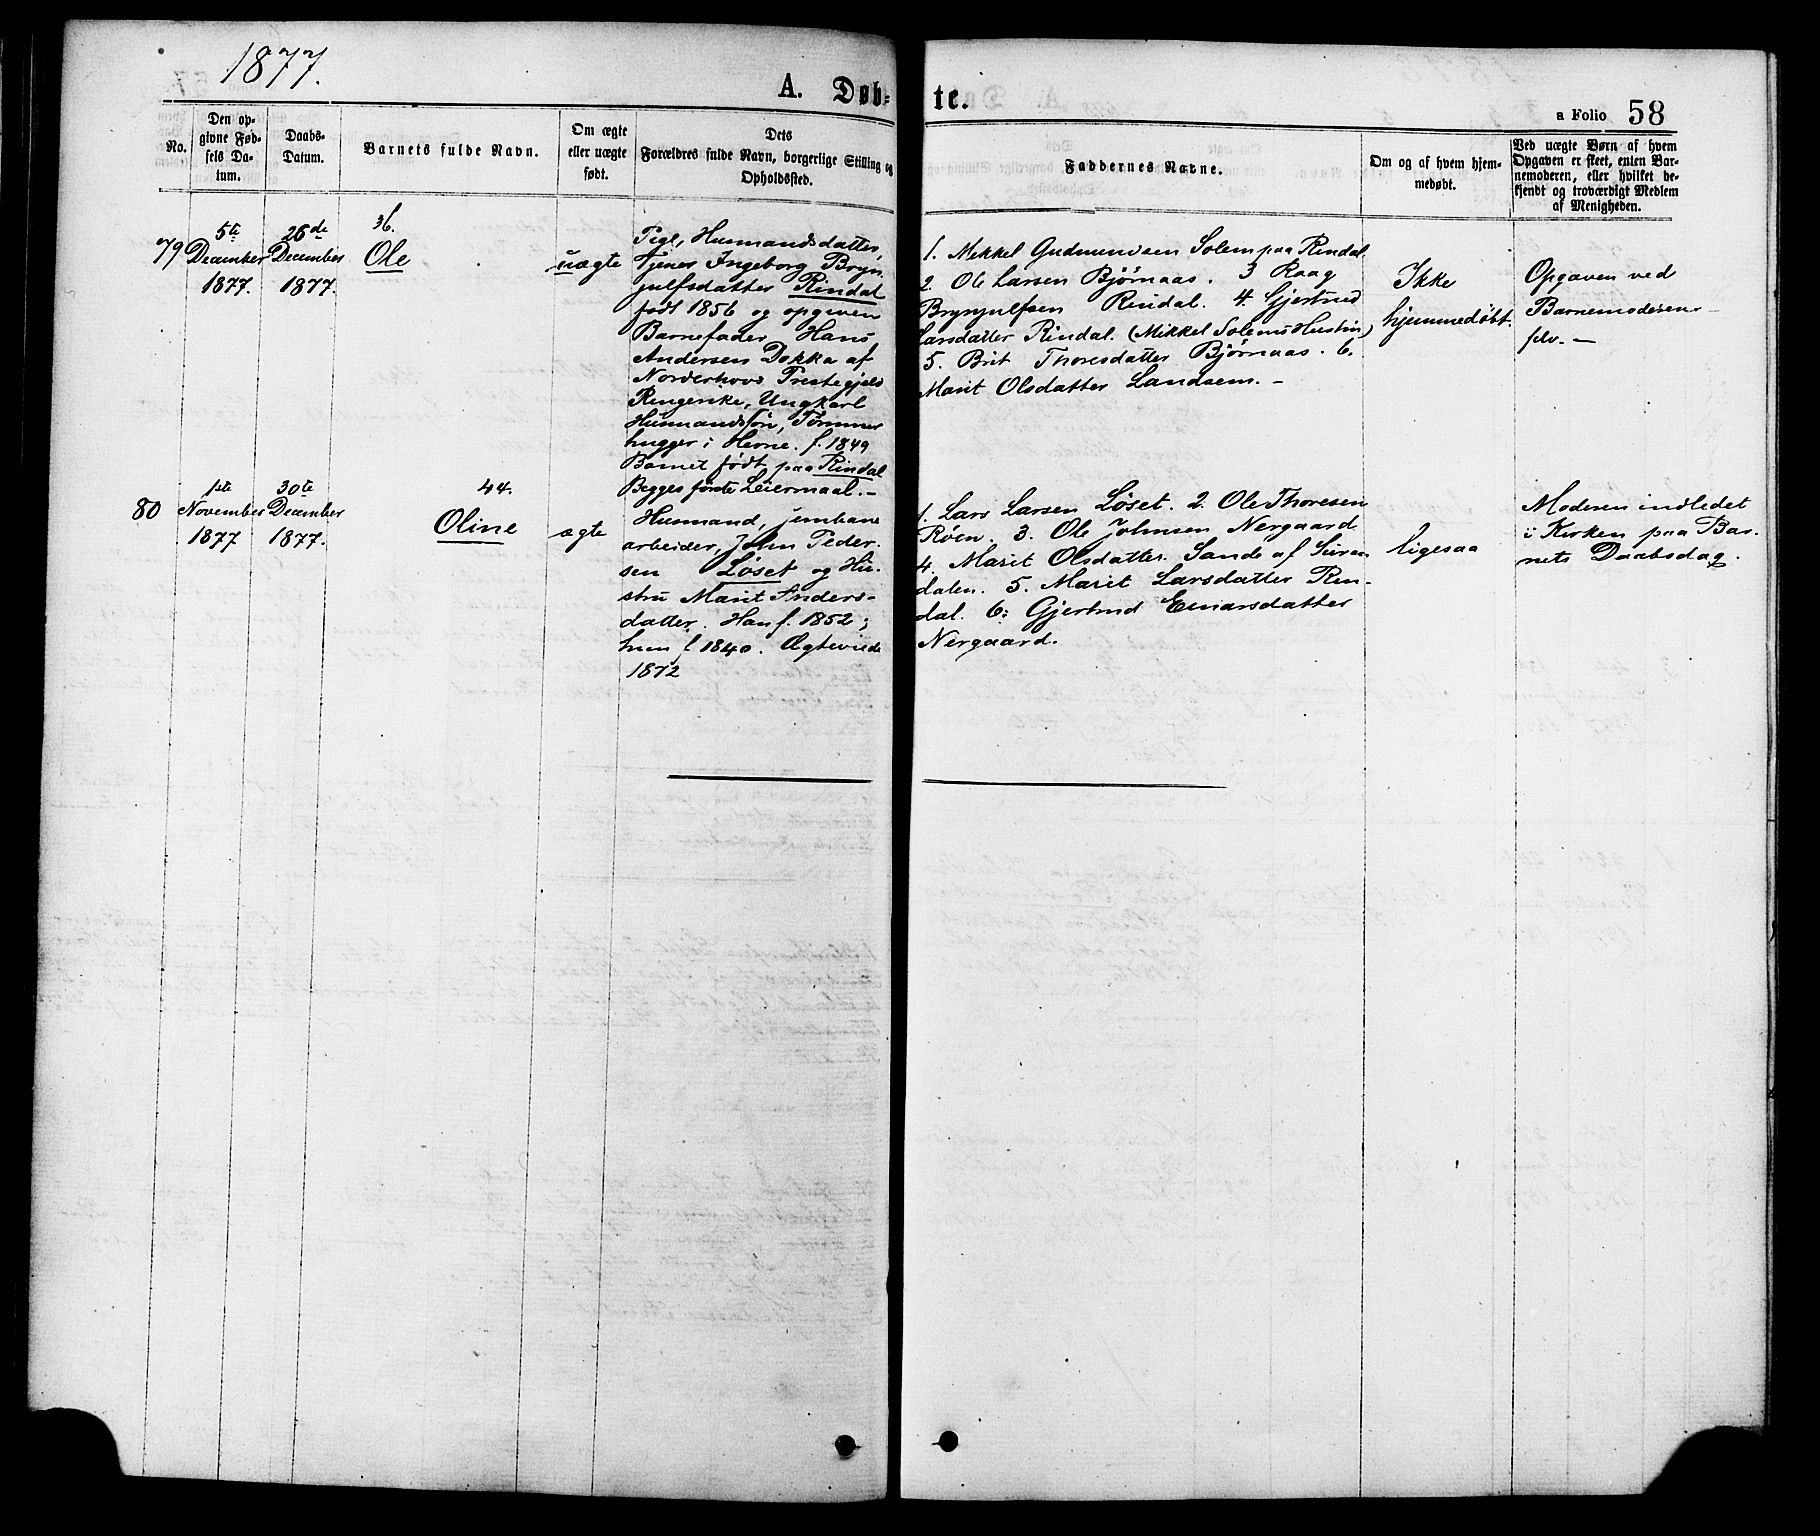 1877.
A. Døb=
te.
a Folio 58
No.
Den op-
givne Føb-
sels Da-
tum.
Daabs-
Datum.
Barnets fulde Navn.
Om ægte
eller uægte
født.
Dets
Forældres fulde Navn, borgerlige Stilling og
Opholdssted.
Faddernes Navne.
Om og af hvem hjem-
medøbt.
Ved uægte Børn af hvem
Opgaven er skeet, enten Bar-
nemoderen, eller hvilket be-
kjendt og troværdigt Medlem
af Menigheden.
79
5te
December
1877.
26de
December
1877.
36.
Ole
uægte
Pige, Husmandsdatter,
Tjener Ingeborg Bryn
julfsdatter Rindal
født 1856 og opgiven
Barnefader Hans
Andersen Dokka af
Norderhovs Prestegjeld
Ringerike, Ungkarl
Husmandssøn, Tømmer
hugger i Hevne. f. 1849
Barnet født paa Rindal
Begges første Leiermaal. -
1. Mikkel Gudmundsen Solem paa Rindal
2. Ole Larsen Bjørnaas. 3 Raag
Brynjulfsen Rindal. 4. Gjertrud
Larsdatter Rindal. (Mikkel Solems Hustru)
5. Brit Thoresdatter Bjørnaas. 6.
Marit Olsdatter Landsem. -
Ikke
hjemmedøbt.
Opgaven ved
Barnemoderen
selv. -
80
1ste
November
1877
30te
December
1877.
44.
Oline
ægte
Husmand, jernbane
arbeider, John Peder-
sen Løset og Hu-
stru Marit Anders-
datter. Han f. 1852;
hun f. 1840. Ægteviede
1872
1. Lars Larsen Løset. 2. Ole Thoresen
Røen. 3. Ole Johnsen Nergaard
4. Marit Olsdatter Sande af Suren
dalen. 5. Marit Larsdatter Rin-
dal. 6: Gjertrud Einarsdatter
Nergaard.
ligesaa
Moderen indledet
i Kirken paa Bar-
nets Daabsdag.